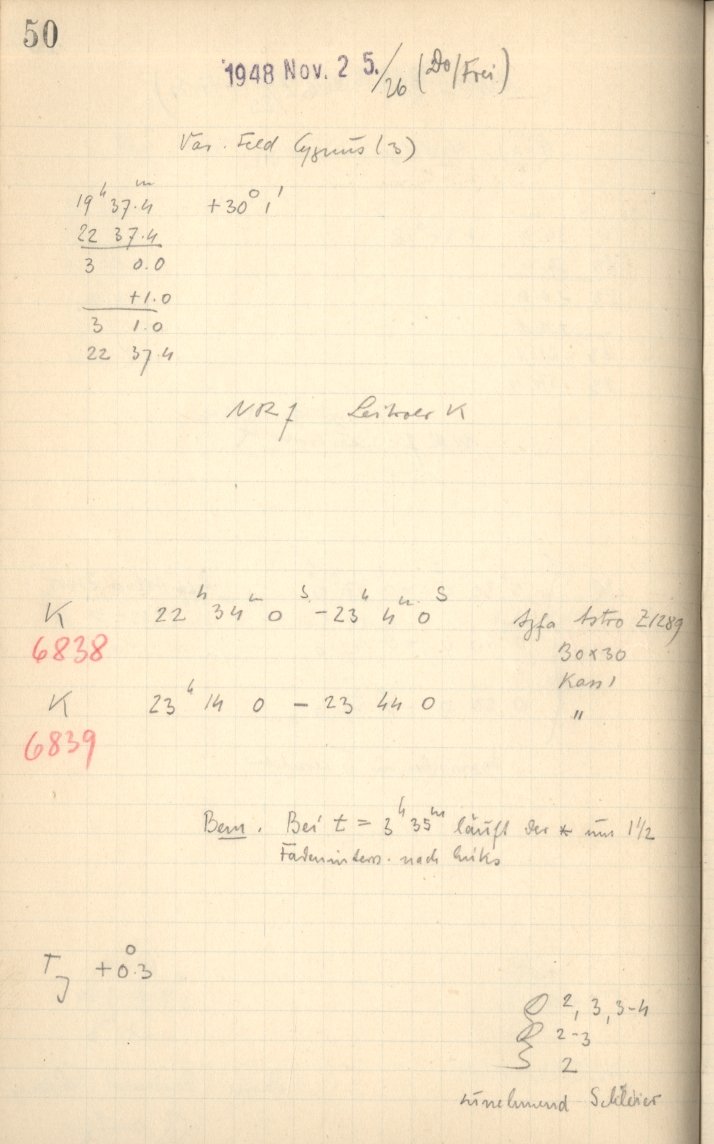 50
1948 Nov. 2 5./26 (Do/Frei)
Var. Feld Cygnus (3)
19ʰ 37.4ᵐ +30° 1'
22 37.4
3 0.0
+1.0
3 1.0
22 37.4
K 22ʰ 34ᵐ 0ˢ - 23ʰ 4ᵐ 0ˢ Agfa Astro Z1289
6838 30x30
Kass 1
K 23ʰ 14 0 - 23 44 0 "
6839
Bem. Bei t = 3ʰ 35ᵐ läuft der * um 1 1/2
Fadeninterv. nach links
T +0.°3
2, 3, 3-4
2-3
2
zunehmend Schleier